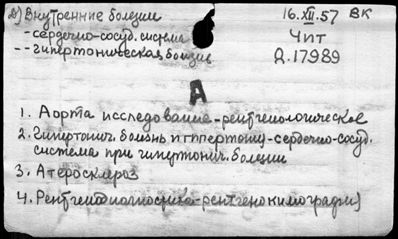 2) Внутренние болезни 16.XII.57 ВК
- сердечно-сосуд. система Чит
-- гипертоническая болезнь Д.17989
А
1. Аорта исследование - рентгенологическое
2. Гипертонич. болезнь и гипертония - сердечно-сосуд.
система при гипертонич. болезни
3. Атеросклероз
4. Рентгенодиагностика - рентгенокимография